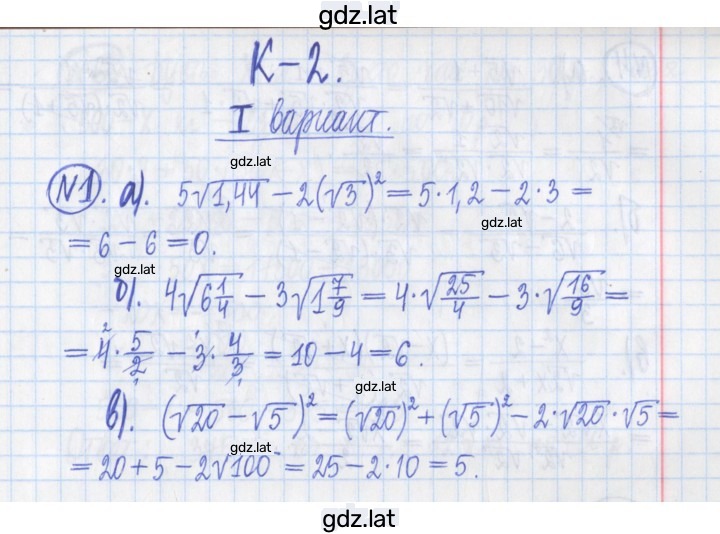 gdz.lat
К-2.
I вариант.
gdz.lat
№1. а). 5√1,44 - 2(√3)² = 5·1,2 - 2·3 =
gdz.lat
= 6 - 6 = 0.
gdz.lat
б). 4√6 1/4 - 3√1 7/9 = 4·√25/4 - 3·√16/9 =
= 4·5/2 - 3·4/3 = 10 - 4 = 6.
в). (√20 - √5)² = (√20)² + (√5)² - 2·√20·√5 =
gdz.lat
= 20 + 5 - 2√100 = 25 - 2·10 = 5.
gdz.lat